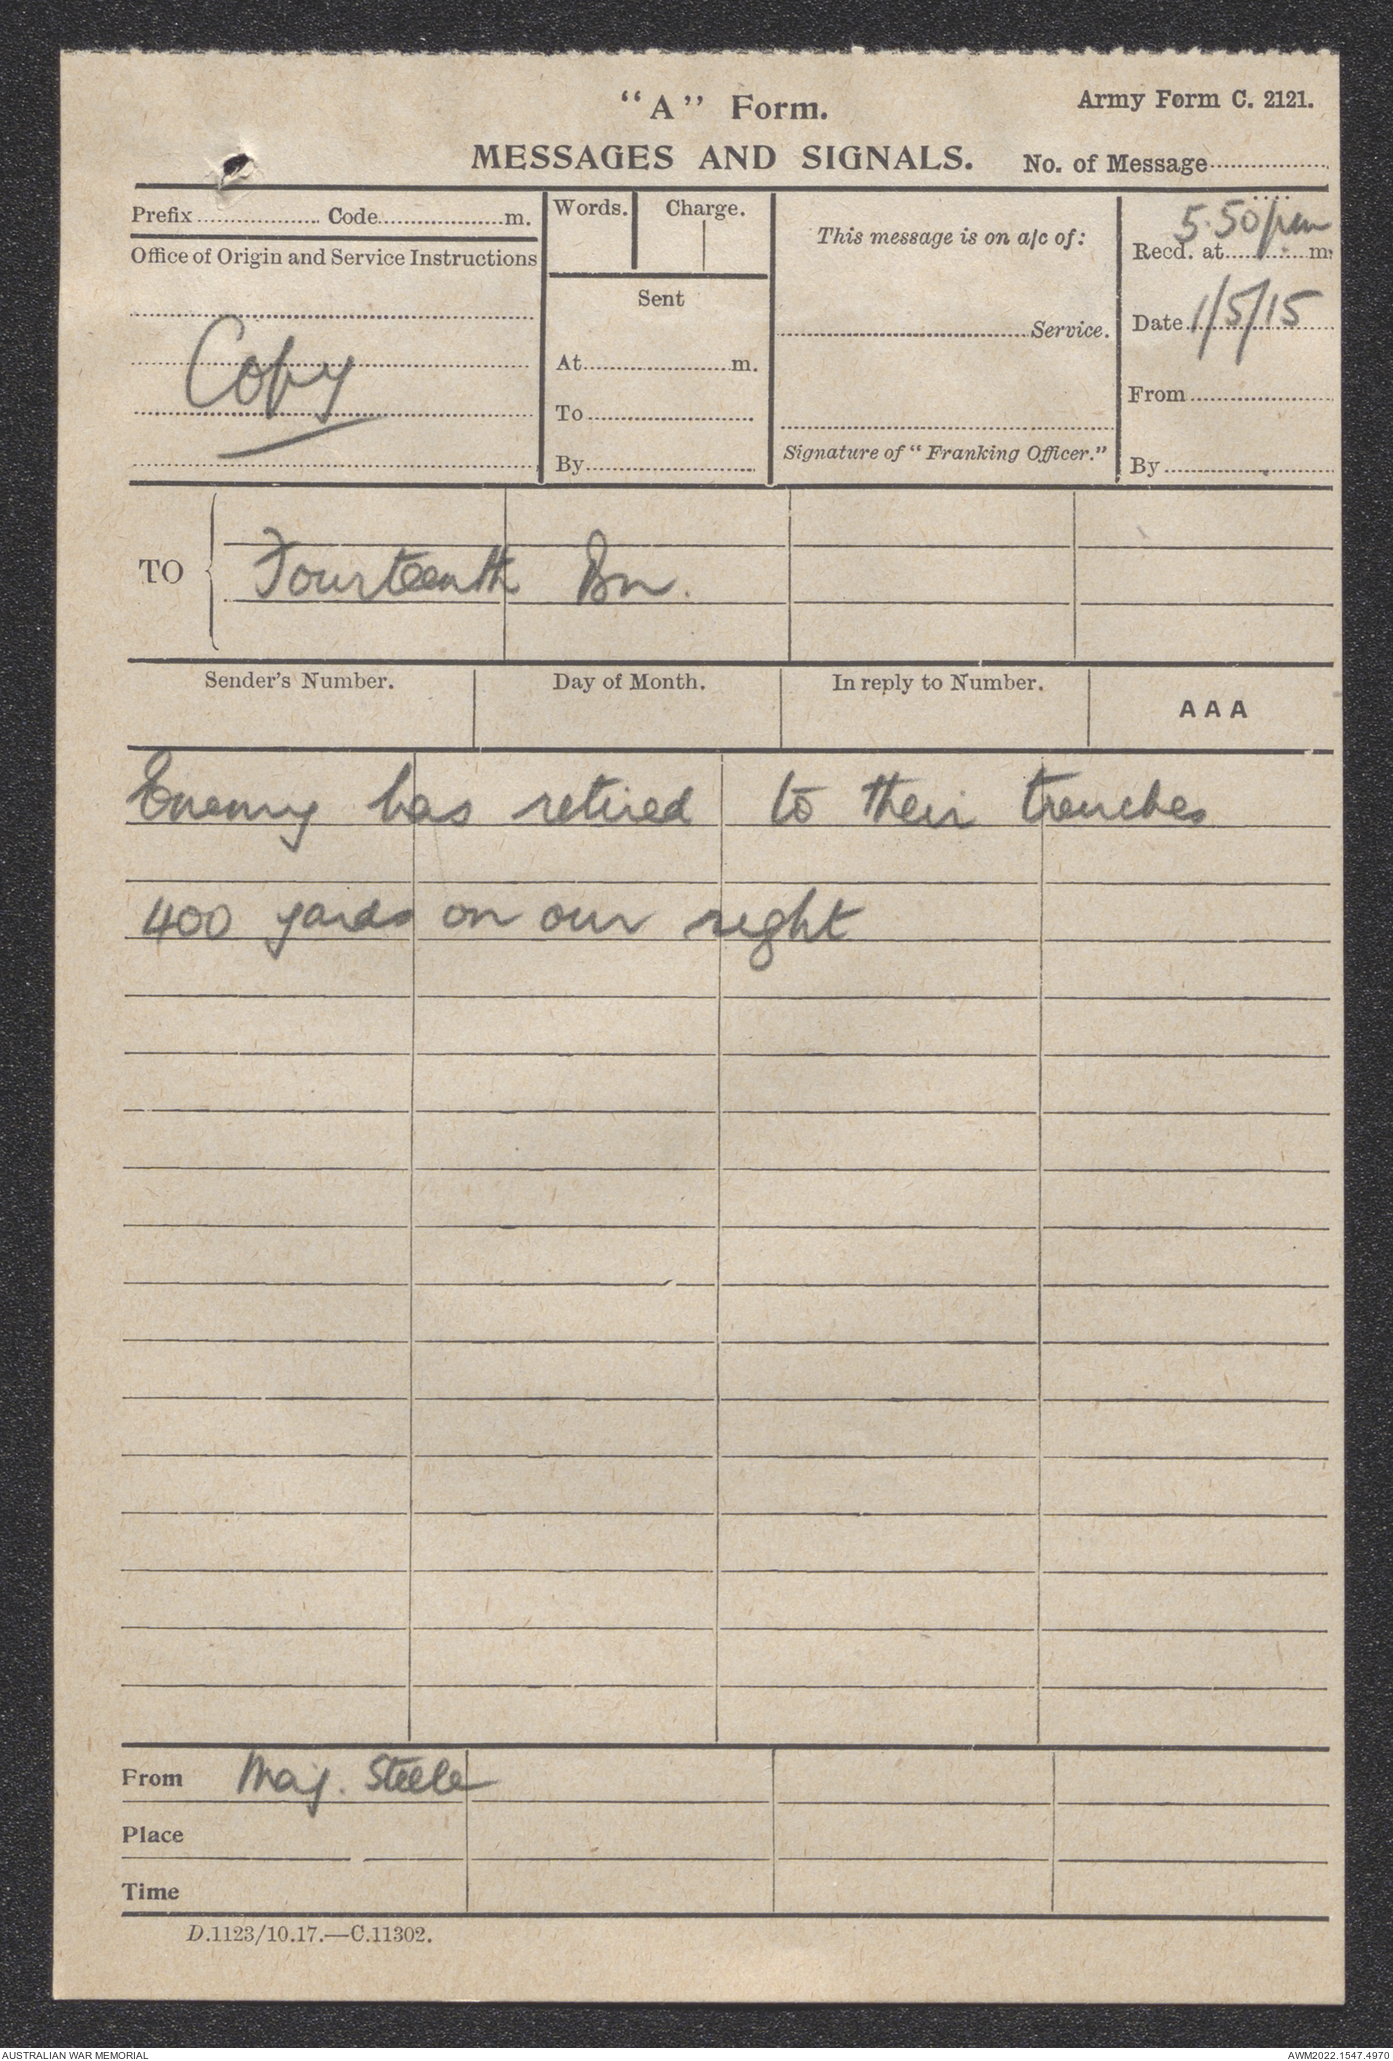 "A" Form.
Army Form C. 2121.
MESSAGES AND SIGNALS.
No. of Message
Prefix Code m.
Words.
Charge.
This message is on a/c of:
5.50 pm
Recd. at m.
Office of Origin and Service Instructions
Sent
Service.
Date 1/5/15
Copy
At m.
From
To
Signature of "Franking Officer."
By
By
TO
Fourteenth Bn.
Sender's Number.
Day of Month.
In reply to Number.
AAA
Enemy has retired to their trenches
400 yards on our right
From Maj. Steele
Place
Time
D.1123/10.17.—C.11302.
AUSTRALIAN WAR MEMORIAL
AWM2022.1547.4970